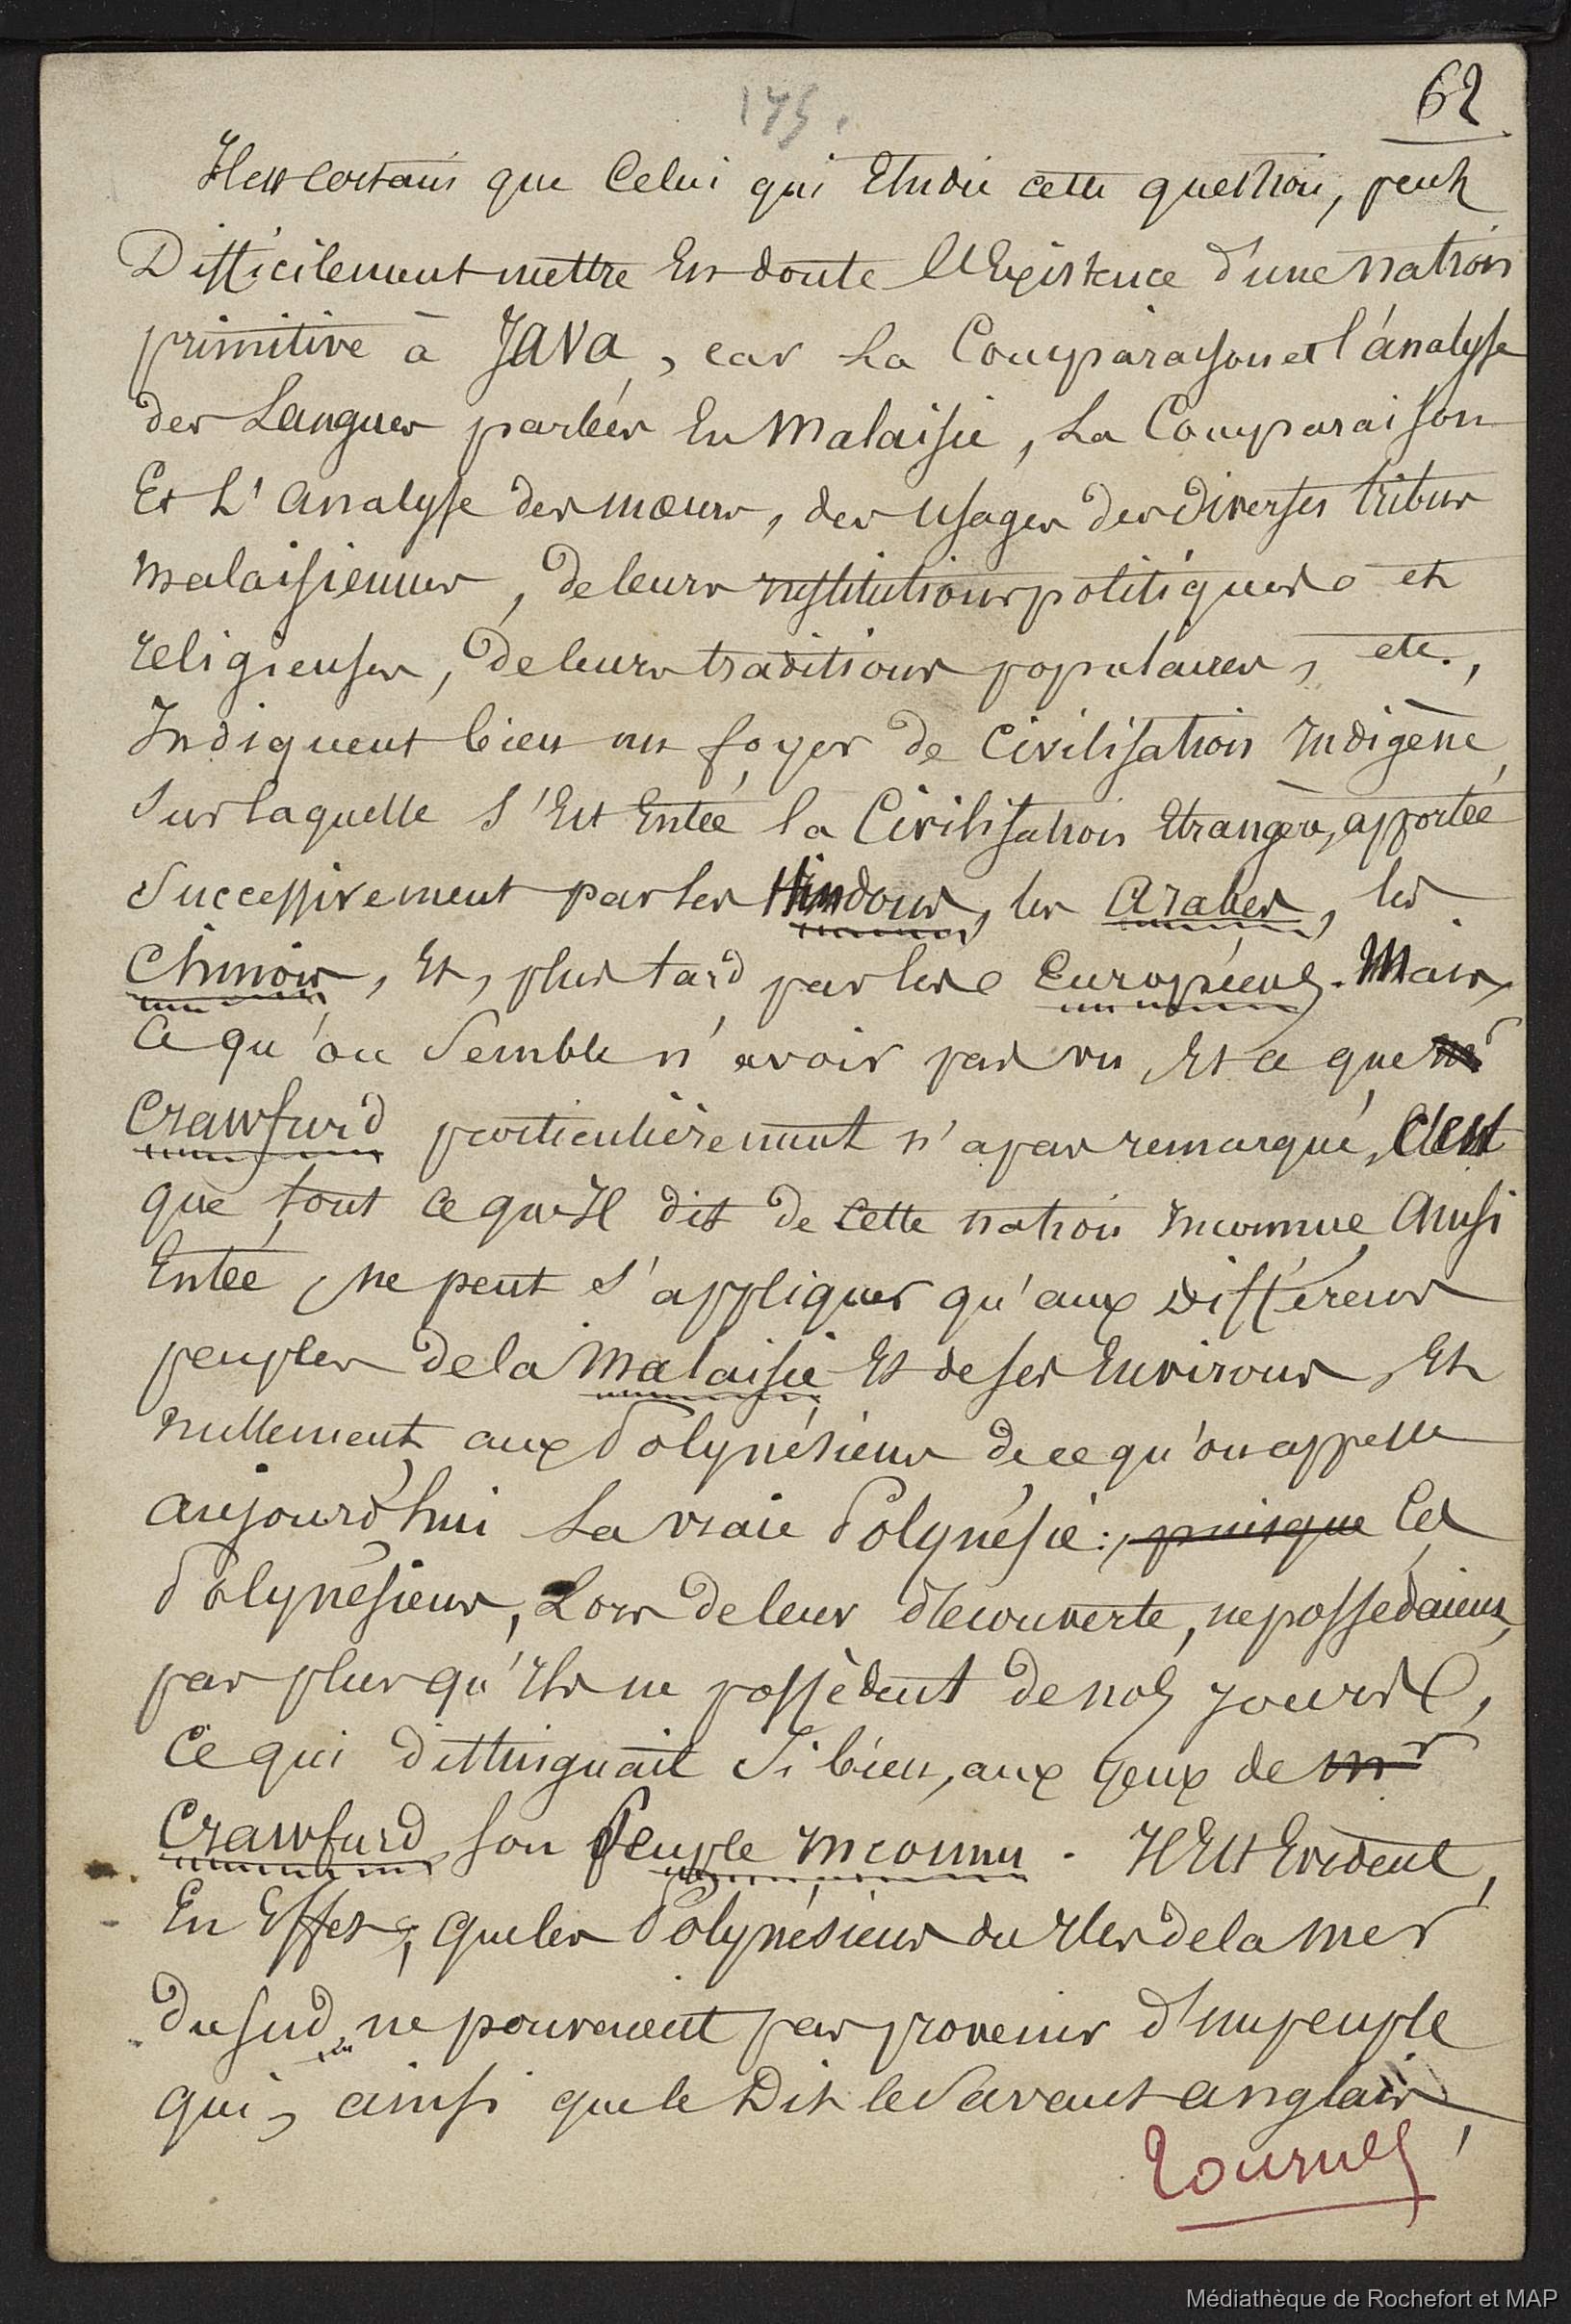 62
175.
Il est certain que celui qui Etudie cette question, peut
Difficilement mettre En doute l'Existence d'une nation
primitive à JAVA, car La Comparaison et l'analyse
des Langues parlées En Malaisie, La Comparaison
Et L'analyse des mœurs, des usages des diverses tribus
malaisiennes, de leurs institutions politiques et
religieuses, de leurs traditions populaires, etc.,
Indiquent bien un foyer de Civilisation Indigène,
Sur laquelle s'Est Entée la Civilisation Etrangère, apportée
Successivement par les Hindous, les Arabes, les
Chinois, Et, plus tard, par les Européens. Mais,
Ce qu'on Semble n'avoir pas vu, Et ce que Mr
Crawfurd particulièrement n'a pas remarqué, C'est
que tout ce qu'Il dit de cette nation Inconnue, Ainsi
Entée, ne peut s'appliquer qu'aux différens
peuples de la Malaisie Et de ses Environs, Et
nullement aux Polynésiens de ce qu'on appelle
aujourd'hui La vraie Polynésie :, puisque Ces
Polynésiens, Lors de leur découverte, ne possédaient,
pas plus qu'Ils ne possèdent de nos jours,
Ce qui distinguait Si bien, aux yeux de Mr
Crawfurd, son Peuple Inconnu. Il Est Evident,
En Effet, que les Polynésiens des Iles de la mer
du Sud, ne pouvaient pas provenir d'un peuple
qui, ainsi que le Dit le Savant anglais,
Tournez
Médiathèque de Rochefort et MAP